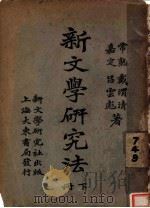 常熟戴渭清
嘉定呂雲彪
著
新文學研究法
下
新文學研究社出版
上海大東書局發行
749